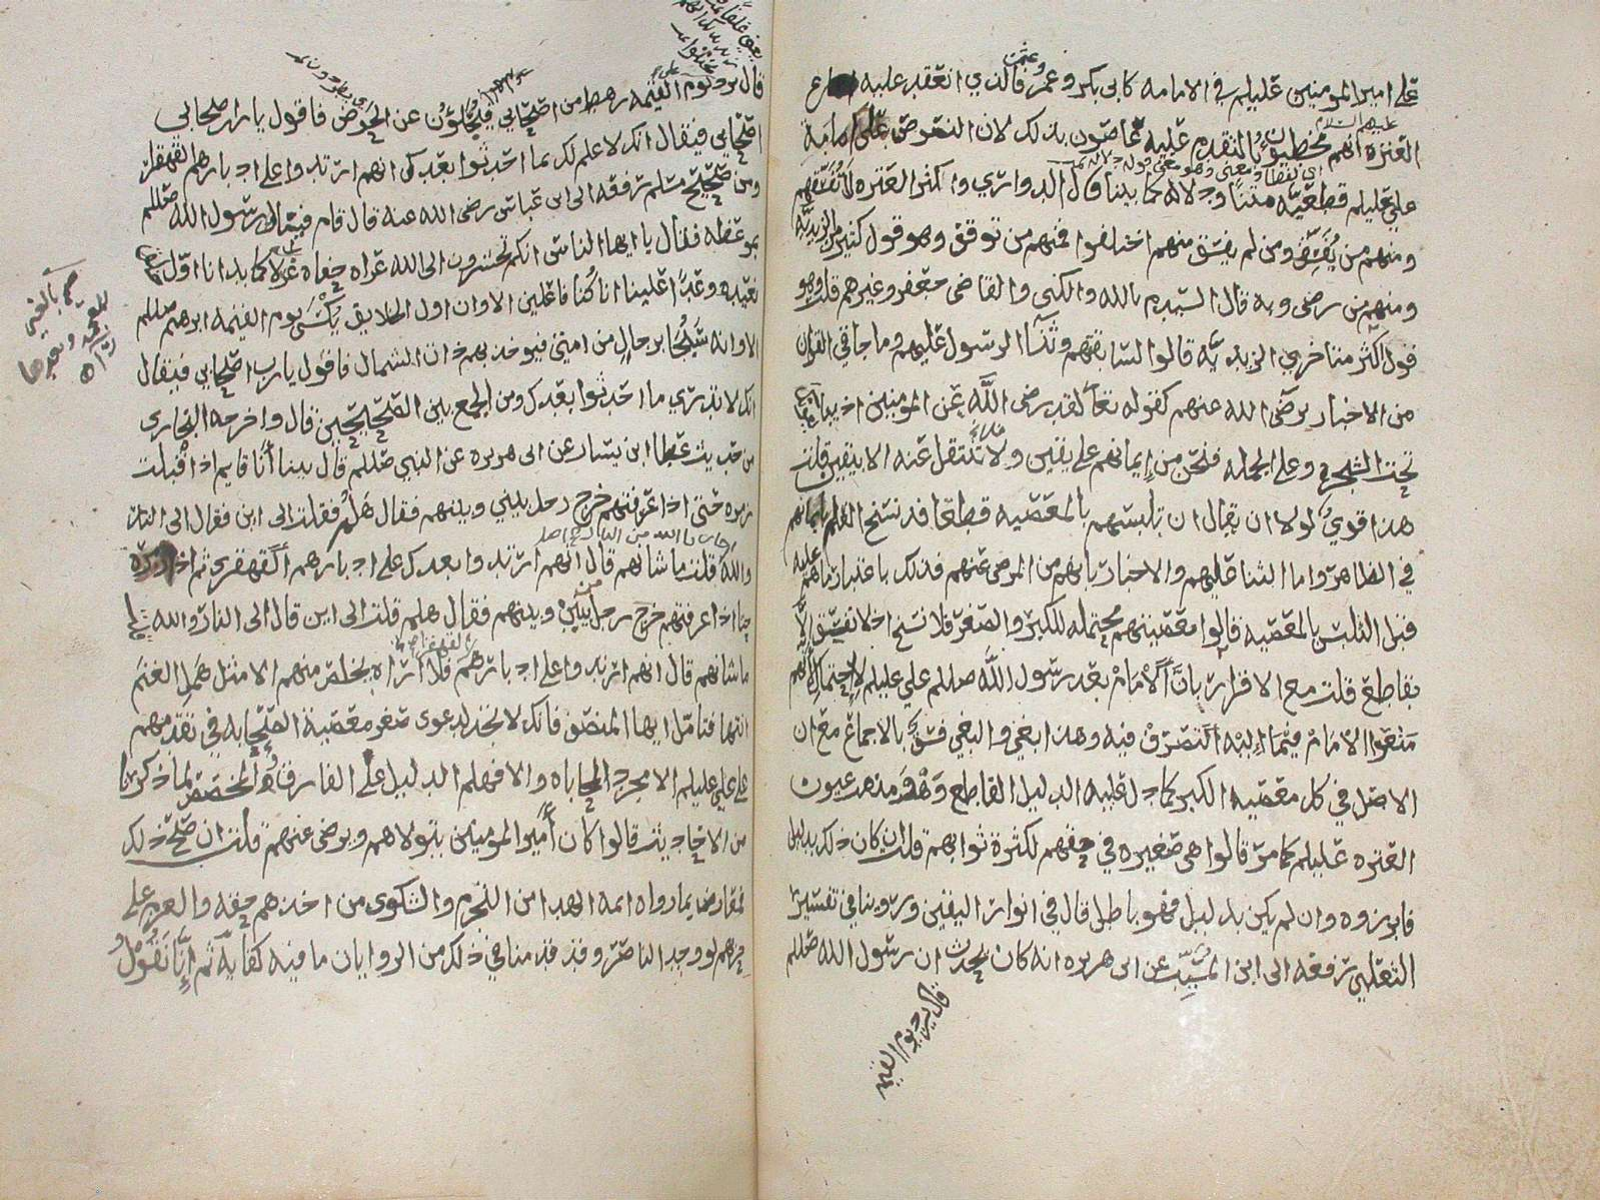 على امير المومنين عليلم في الامامه كابى بكر وعمر وعثمن فالذي انعقد عليه
العتره انهم عليهم السلام مخطئون بالتقدم عليه عاصون بذلك لان النصوص على امامة
علي عليلم قطعيه متنا ودلاله كما بينا قال الدواري واكثر العتره لا تفسقهم
اي لفظا ومعنى وهو معنى قوله دلاله
ومنهم من يفسق ومن لم يفسق منهم اختلفوا فمنهم من توقف وهو قول كثير من الزيديه
ومنهم من رضى وبه قال السيد م بالله والكني والقاضى جعفر وغيرهم قلت وهو
قول اكثر متاخري الزيديه قالوا لسابقتهم وثنآ الرسول عليهم وما جا في القران
من الاخبار برضى الله عنهم كقوله تعا لقد رضى الله عن المومنين اذ يبايعونك
تحت الشجره وعلى الجمله فنحن من إيمانهم على يقين ولا ننتقل عنه الا بيقين قلت
هذا قوي لولا ان يقال ان تلبسهم بالمعصيه قطعا قد نسخ العلم بايمانهم
في الظاهر واما الثنا عليهم والاخبار بانهم من المرضى عنهم فذلك باعتبار ما هم عليه
قبل التلبس بالمعصيه قالوا معصيتهم محتمله للكبر والصغر فلا نسخ اذ لا تفسق الا
بقاطع قلت مع الاقرار بان الامام بعد رسول الله صللم علي عليلم لا احتمال لانهم
منعوا الامام فيما اليه التصرف فيه وهذا بغي والبغي فسق بالاجماع مع ان
الاصل في كل معصيه الكبر كما دل عليه الدليل القاطع وهو مذهب عيون
العتره عليلم كما مر قالوا هي صغيره في حقهم لكثرة ثوابهم قلت ان كان ذلك بدليل
فابرزوه وان لم يكن بدليل فهو باطل قال في انوار اليقين وروينا في تفسير
الثعلبي رفعه الى ابن المسيب عن ابى هريره انه كان يحدث ان رسول الله صللم
قال يرد يوم القيمه
قال يرد علي يوم القيمه رهط من اصحابي فيحلؤن عن الحوض فاقول يا رب اصحابي
اصحابي فيقال انك لا علم لك بما احدثوا بعدك انهم ارتدوا على ادبارهم القهقرى
ومن صحيح مسلم رفعه الى ابن عباس رضى الله عنه قال قام فينا رسول الله صللم
بموعظه فقال يا ايها الناس انكم تحشرون الى الله عراه حفاه غرلا كما بدانا اول خلق
نعيده وعدا علينا انا كنا فاعلين الا وان اول الخلايق يكسى يوم القيمه ابرهيم صللم
الا وانه سيجا برجال من امتي فيوخذ بهم ذات الشمال فاقول يا رب اصحابي فيقال
انك لا تدري ما احدثوا بعدك ومن الجمع بين الصحيحين قال واخرجه البخارى
من حديث عطا ابن يسار عن ابى هريره عن النبي صللم قال بينا أنا قايم اذ اقبلت
زمره حتى اذا عرفتهم خرج رجل بيني وبينهم فقال هلم فقلت الى اين فقال الى النار
والله قلت ما شانهم قال انهم ارتدوا بعدك على ادبارهم القهقرى ثم اذا زمره
حتا اذا عرفتهم خرج رجل من بيني وبينهم فقال هلم قلت الى اين قال الى النار والله قلت
ما شانهم قال انهم ارتدوا على ادبارهم القهقرا فلا أراه يخلص منهم الا مثل همل الغنم
انتها فتامل ايها المنصف فانك لا تجد لدعوى صغر معصية الصحابه في تقدمهم
على علي عليلم الا مجرد المحاباه والا فهلم الدليل على الفارق والمخصص لما ذكرنا
من الاحاديث قالوا كان أمير المومنين يتولاهم ويرضى عنهم قلت ان صح ذلك
فمعارض بما رواه ائمه الهدا من التجرم والشكوى من اخذهم حقه والعزم على
حربهم لو وجد الناصر وقد قدمنا في ذلك من الروايات ما فيه كفايه ثم إنا نقول